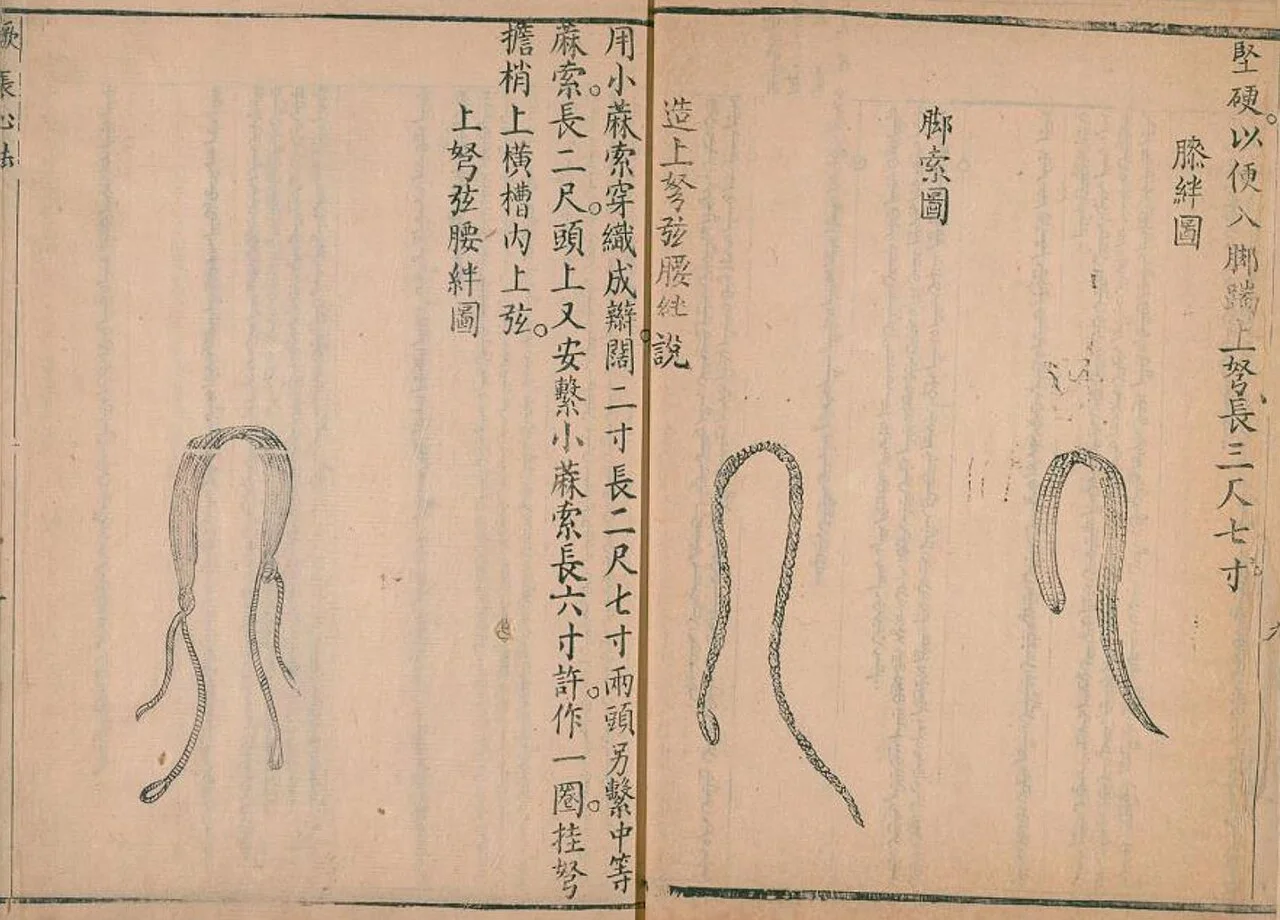 堅硬。以便入脚踹上弩長三尺七寸
膝絆圖
脚索圖
造上弩弦腰絆說
用小蔴索穿織成辮。闊二寸長二尺七寸兩頭另繫中等
蔴索。長二尺。頭上又安繫小蔴索長六寸許。作一圈。挂弩
擔梢上橫槽內上弦。
上弩弦腰絆圖
張心法